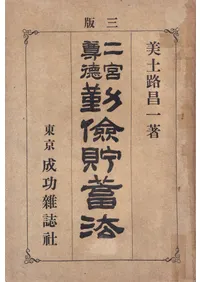 三版
美土路昌一著
二宮尊徳
勤儉貯蓄法
東京 成功雜誌社